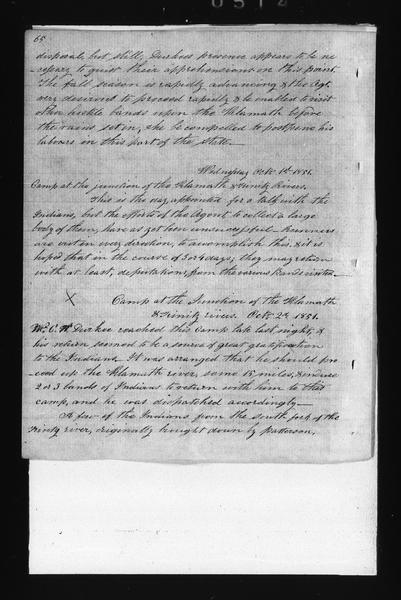 65
disposal, but still, Durkees presence appears to be ne-
-cessary to quiet their apprehensions on this point.
The fall season is rapidly advancing & the Agt.
very desirous to proceed rapidly & be enabled to visit
other hostile bands upon the Klamath before
the rains set in, else be compelled to postpone his
labours in this part of the State.—
Wednesday Octr. 1st 1851.
Camp at the junction of the Klamath & Trinity Rivers.
This is the day appointed for a talk with the
Indians, but the efforts of the Agent to collect a large
body of them, have as yet been unsuccessful. Runners
are out in every direction, to accomplish this, & it is
hoped that in the course of 3 or 4 days, they may return
with at least, deputations, from the various bands
X Camp at the Junction of the Klamath
& Trinity rivers. Octr. 2d. 1851.
Mr. C. W. Durkee reached this Camp late last night, &
his return seemed to be a source of great gratification
to the Indians. It was arranged that he should pro
ceed up the Klamath river, some 15 miles, & induce
2 or 3 bands of Indians to return with him to that
camp, and he was dispatched accordingly.—
A few of the Indians from the South fork of the
Trinity river, originally brought down by Patterson,